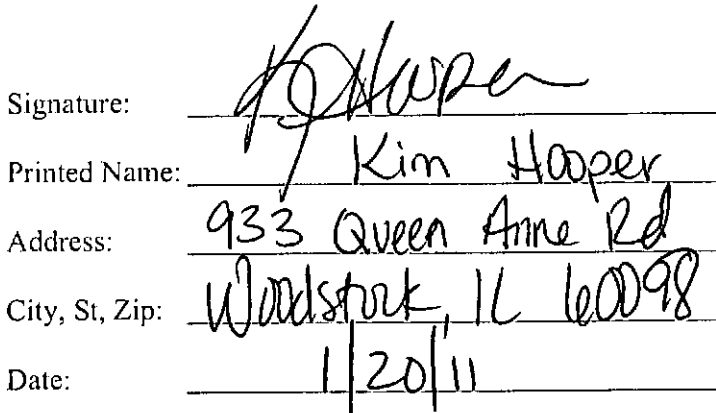 Signature: K Hooper
Printed Name: Kim Hooper
Address: 933 Queen Anne Rd
City, St, Zip: Woodstock, IL 60098
Date: 1/20/11